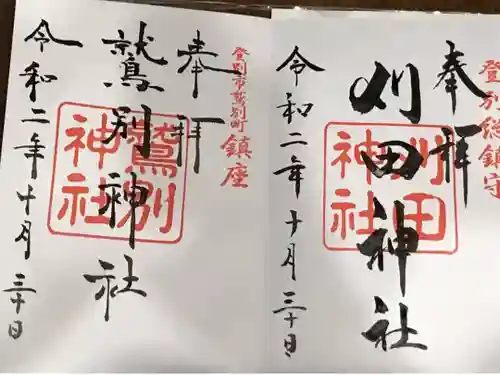 登別総鎮守
奉拝
刈田神社
刈田
神社
令和二年十月三十日
登別市鷲別町
鎮座
奉拝
鷲別神社
鷲別
神社
令和二年十月三十日